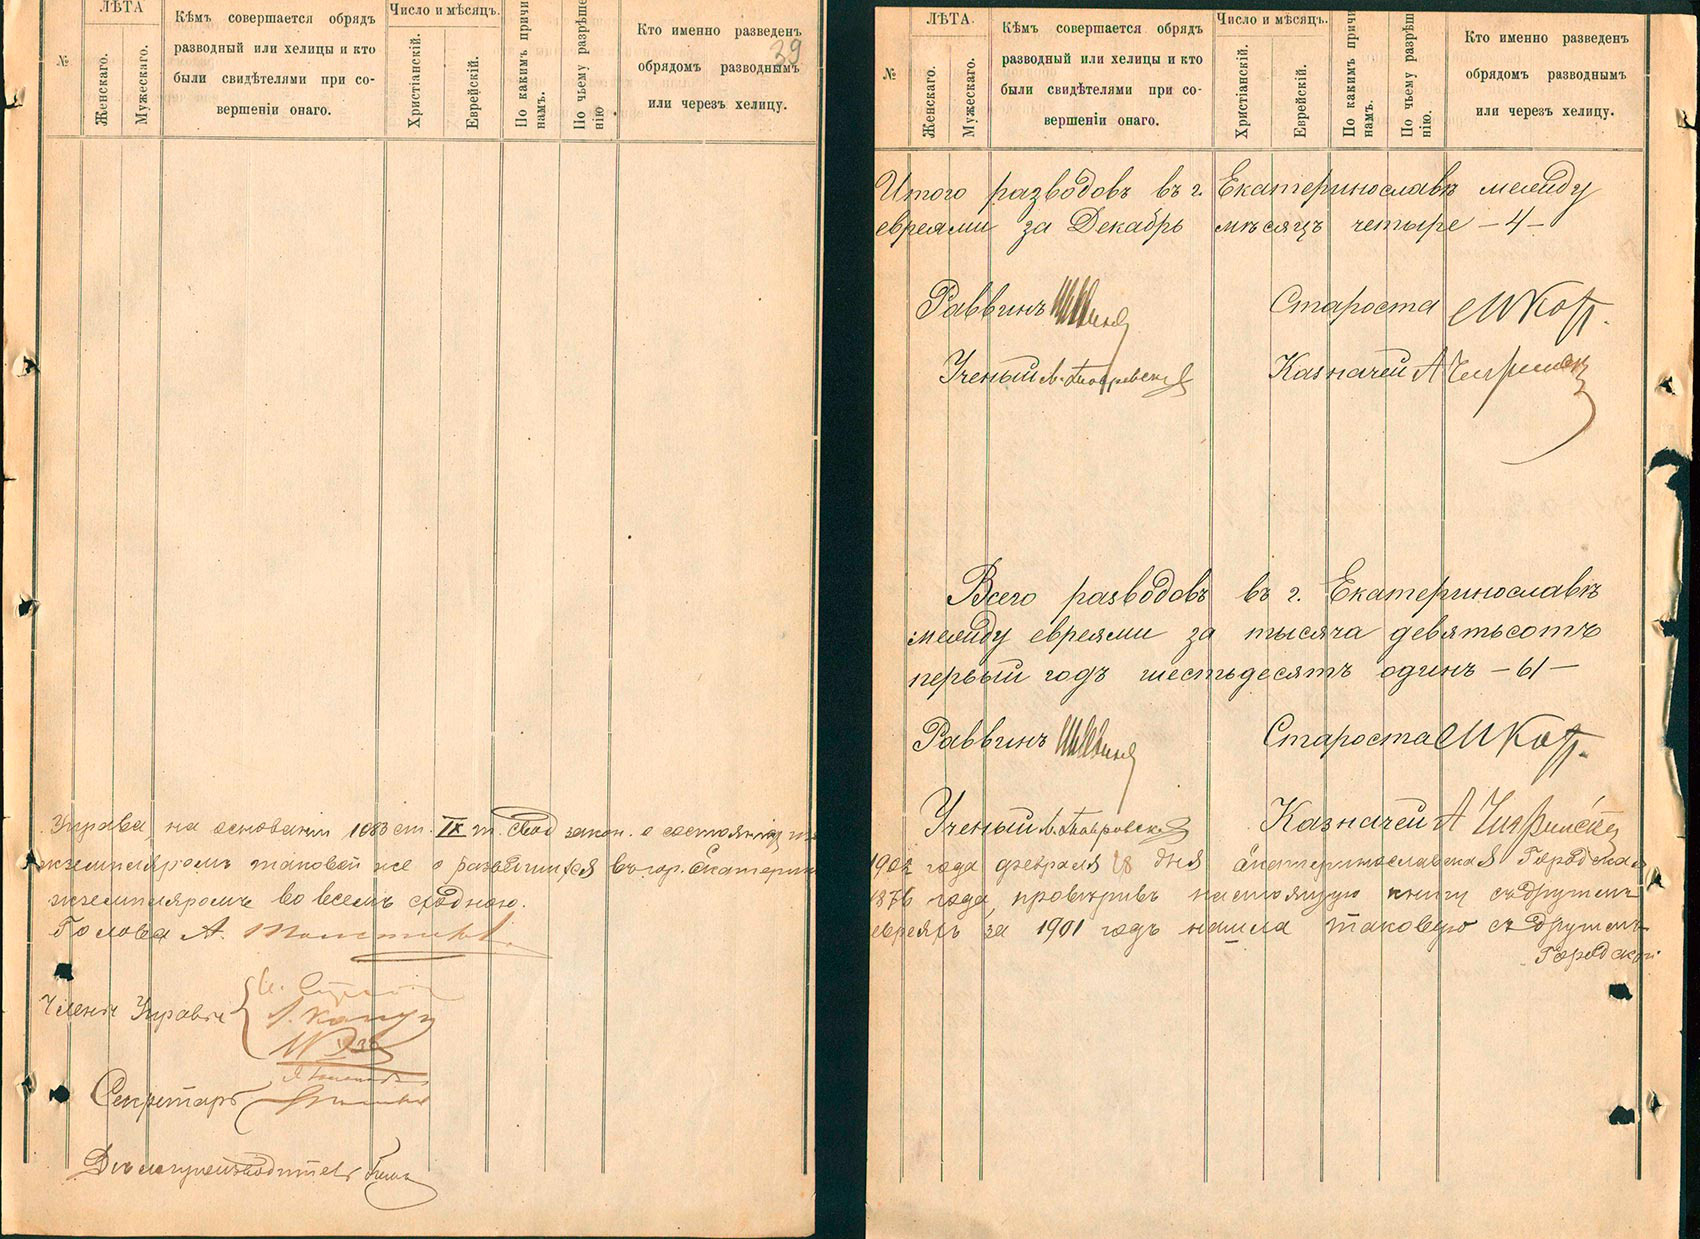 ЛѢТА
№
Женскаго.
Мужескаго.
Кѣмъ совершается обрядъ
разводный или хелицы и кто
были свидѣтелями при со-
вершеніи онаго.
Число и мѣсяцъ.
Христіанскій.
Еврейскій.
По какимъ причи
намъ.
По чьему разрѣше
нію
Кто именно разведенъ
обрядомъ разводнымъ
или черезъ хелицу.
39
Управа, на основаніи 1083 ст. IX т. Свод. закон. о состояніяхъ
экземпляромъ таковой же о разводившихся въ гор. Екатерин
экземпляромъ во всемъ сходною.
Голова А.
Члены Управы
Секретарь
Дѣлопроизводитель
ЛѢТА.
№
Женскаго.
Мужескаго.
Кѣмъ совершается обрядъ
разводный или хелицы и кто
были свидѣтелями при со-
вершеніи онаго.
Число и мѣсяцъ.
Христіанскій.
Еврейскій.
По какимъ причи
намъ.
По чьему разрѣше
нію.
Кто именно разведенъ
обрядомъ разводнымъ
или черезъ хелицу.
Итого разводовъ въ г. Екатеринославѣ между
евреями за Декабрь мѣсяцъ четыре —4—
Раввинъ Староста
Ученый Казначей А
Всего разводовъ въ г. Екатеринославѣ
между евреями за тысяча девятьсотъ
первый годъ шестьдесятъ одинъ —61—
Раввинъ Староста
Ученый Казначей А
1902 года февраля 28 дня Екатеринославская Городская
1876 года, провѣривъ настоящую книгу съ другимъ
евреяхъ за 1901 годъ нашла таковую съ другимъ
Городской